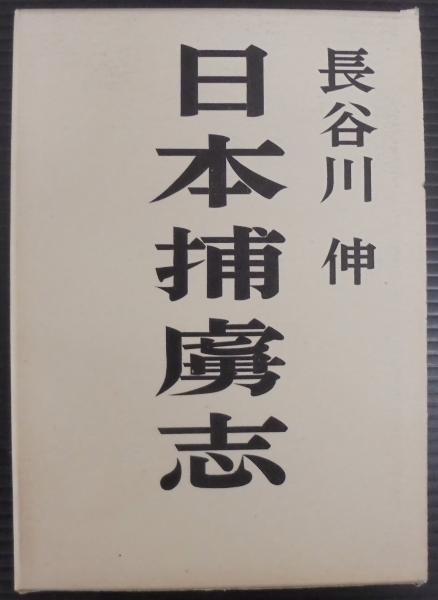 長谷川 伸
日本捕虜志